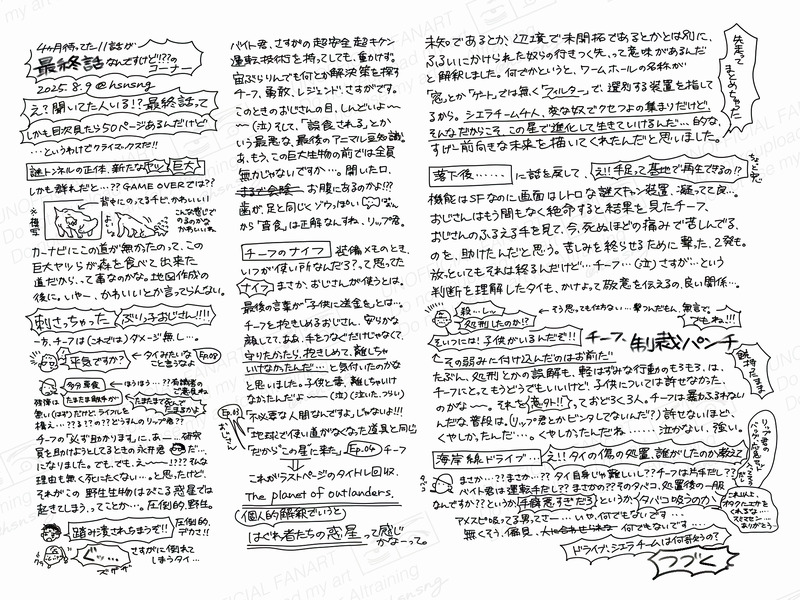 4ヶ月待ってた11話が
最終話なんですけど!!??の
コーナー
2025.8.9 @hsnsng
え?聞いてた人いる!?最終話って
しかも目次見たら50ページあるんだけど
…というわけでクライマックスだ!!
謎トンネルの正体、新たなヤツ、巨大
しかも群れだと…?? GAME OVERでは??
背中にのってるチビ、かわいい!
※模写
こんな感じで
かわいいね
カーナビにこの道が無かったのって、この
巨大ヤツらが森を食べて出来た
道だから、って事なのかな。地図作成の
後に。いや、かわいいとか言ってらんない。
刺さっちゃった ぶり子おじさん!!!!
一方、チーフは(これでは)ダメージ無し…。
平気ですか?
←タイみたいな
こと言うなよ
Ep.08
今分悪食
←ほうほう…??有識者の
ご意見ね
無い(はず)だけど、ライフルを
構え…??の??どうすんのリップ君??
チーフの「必ず助かります」に、あー……研究
員を助けようとしてるときの永井君だ…
になりました。でも、でも、え〜…????そんな
理由も無く死にたくない…。と思ったけど、
それがこの野生生物はびこる惑星では
起きてしまうってことか…。圧倒的、野生。
踏み潰されちまうぞ!!
圧倒的、
デカさ!!
ぐッ…
ズザザ
さすがに倒れて
しまうタイ…
バイト君、さすがの超安全超キケン
運転技術を持ってしても、重かげす。
宙ぶらりんでも何とか解決策を探す
チーフ、勇敢、レジェンド、さすがです。
このときのおじさんの目、しんどいよ〜
〜(泣)そして、「誤食される」とか
いう最悪な、最後のアニマル豆知識。
あ、もう、この巨大生物の前では全員
無力じゃないですか…。開いた口、
お腹にあるのかよ!!?
歯が、足と同じくゾウっぽい
から"草食"は正解なんすね、リップ君。
チーフのナイフ 装備〆のとき、
いつか使い所なんだろ?って思ってた
ナイフ まさか、おじさんが使うとは。
最後の言葉が「子供に送金を」とは…。
チーフを抱きしめるおじさん。安らかな
顔してて、ああ、手をつなぐだけじゃなくて、
守りたかったり、抱きしめて、離しちゃ
いけなかったんだ…と気付いたのかな
と思いました。子供と妻、離しちゃいけ
なかったんだよ〜〜(泣)(泣いた、つらい)
「不必要な人間なんですよ」じゃないよ!!!
「地球にで使い道がなくなった道具と同じ
「だからこの星に来た」 Ep.04 チーフ
これがラストページのタイトル回収、
The planet of outlanders.
個人的解釈でいうと
はぐれ者たちの惑星って感じ
かなーって。
未知であるとか、辺境で未開拓であるとかとは別に、
ふるいにかけられた奴らの行きつく先、って意味があるんだ
と解釈しました。何でかというと、ワームホールの名称が
「窓」とか「ゲート」では無く「フィルター」で、選別する装置を指して
るから。シエラチーム4人、変な奴でクセつよの集まりだけど、
そんなだからこそ、この星で進化して生きていけるんだ…的な、
すげー前向きな未来を描いてくれたんだと思いました。
先走って
まとめちゃった
落下後…… に話を戻して、え!!手足って基地で再生できるの!?
機能はSFなのに画面はレトロな謎スキャン装置、凝ってて良…。
おじさんはもう間もなく絶命すると結果を見たチーフ、
おじさんのふるえる手を見て、今、死ぬほどの痛みで苦しんでる、
のを、助けたんだと思う。苦しみを終らせるために撃った、2発も。
放っといてもそれは終るんだけど…チーフ…(泣)さすが…という
判断を理解したタイも、かけよって敬意を伝えるの、良い関係…。
殺…しッ
処刑したのか!?
←そう思っても仕方ない…。撃つんだもん、無言で。
でもね!!!
そいつには!子供がいるんだぞ!! チーフ、制裁パンチ
←その弱みに付け込んだのはお前だ"
たぶん、処刑とかの誤解も、軽はずみな行動のもろもろは、
チーフにとってもうどうでもいいけど、子供については許せなかった。
のかな〜。それを意外!!っておどろく3人。チーフは暴力ふるわない
んだな普段は、(リップ君とかビンタしてないんだ?)許せないほど、
くやしかたんだ…。くやしかたんだね……泣かない、強い。
海岸線ドライブ… え!!タイの傷の処置、誰がしたのか教えて
まさか…??まさか?? タイ自身じゃ難しい??チーフは片手だし??
バイト君は運転手だし?? まさかの??そのタバコ、処置後の一服
なんですか??というか手際悪すぎだろというか、タバコ吸うのか
アメスピ吸ってる男ってさー…いや、何でもないです…
無くそう、偏見。何でもないです…
これ以上、
オタクにエサを
くれるな…
スミマセン…
ありがとう…
ドライブ、シエラチームは何を歌うの?
つづく